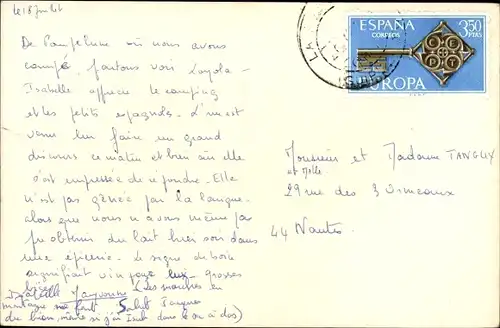 le 18 juillet
De Pampelune où nous avons
campé, partons voir Loyola -
Isabelle apprécie le camping
et les petits espagnols. L'un est
venu lui faire un grand
discours ce matin et bien sûr elle
s'est empressée de répondre. Elle
n'est pas gênée par la langue
alors que nous n'avons même pas
pu obtenir du lait hier soir dans
une épicerie. Le signe de boire
signifiait vin pour eux grosses
bises
Les marches en
montagne me font Salut Jacques
du bien, même si j'ai Isab dans le ou à dos)
ESPAÑA
CORREOS
3,50
PTAS
EUROPA
Monsieur et Madame TANGUY
et Melle
29 rue des 3 Ormeaux
44 Nantes.